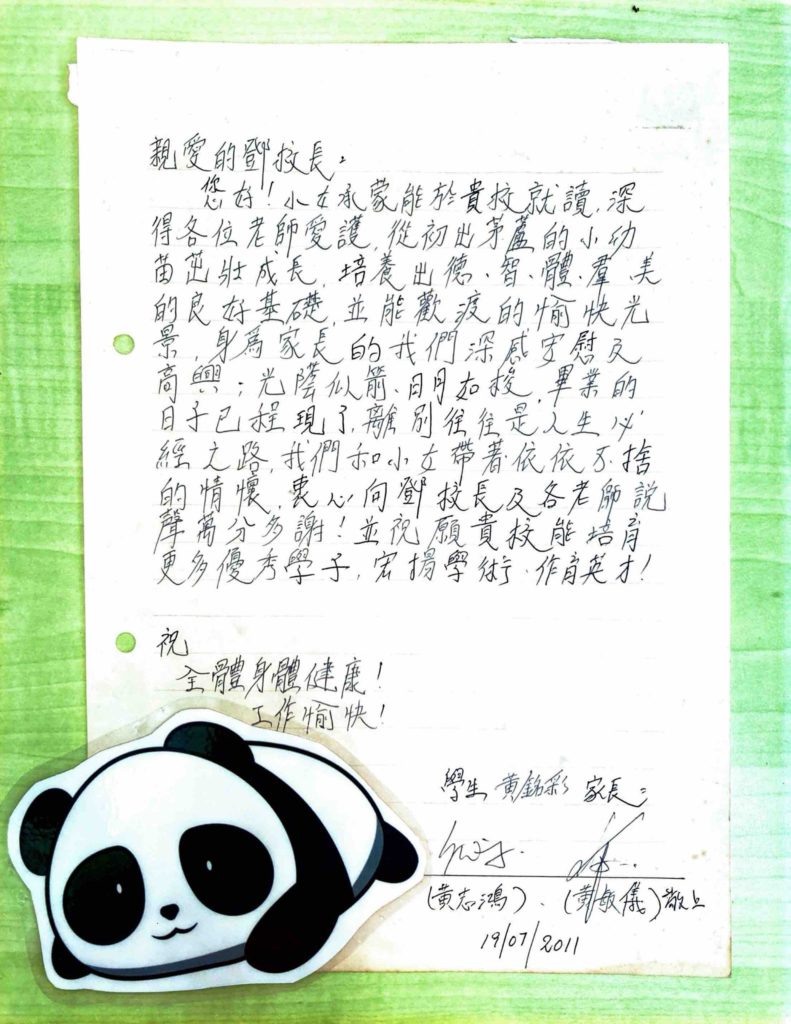 親愛的鄧校長：
您好！小女承蒙能於貴校就讀，深
得各位老師愛護，從初出茅蘆的小幼
苗茁壯成長，培養出德、智、體、羣、美
的良好基礎，並能歡渡的愉快光
景，身為家長的我們深感安慰及
高興；光陰似箭、日月如梭，畢業的
日子已程現了，離別往往是人生必
經之路，我們和小女帶著依依不捨
的情懷，衷心向鄧校長及各老師說
聲萬分多謝！並祝願貴校能培育
更多優秀學子，宏揚學術、作育英才！
祝
全體身體健康！
工作愉快！
學生 黃銘彩 家長：
(黃志鴻)、(黃敏儀) 敬上
19/07/2011